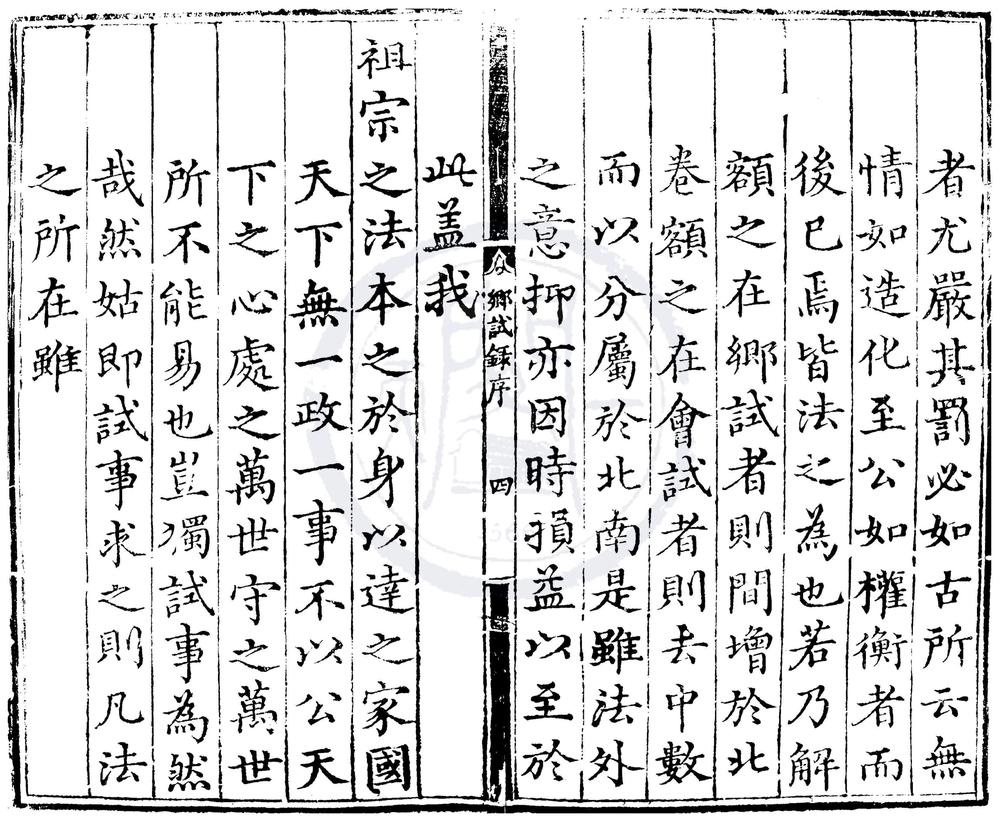 者尤嚴其罰必如古所云無
情如造化至公如權衡者而
後已焉皆法之為也若乃解
額之在鄉試者則間增於北
卷額之在會試者則去中數
而以分屬於北南是雖法外
之意抑亦因時損益以至於
鄉試録序
四
此盖我
祖宗之法本之於身以達之家國
天下無一政一事不以公天
下之心處之萬世守之萬世
所不能易也豈獨試事為然
哉然姑即試事求之則凡法
之所在雖